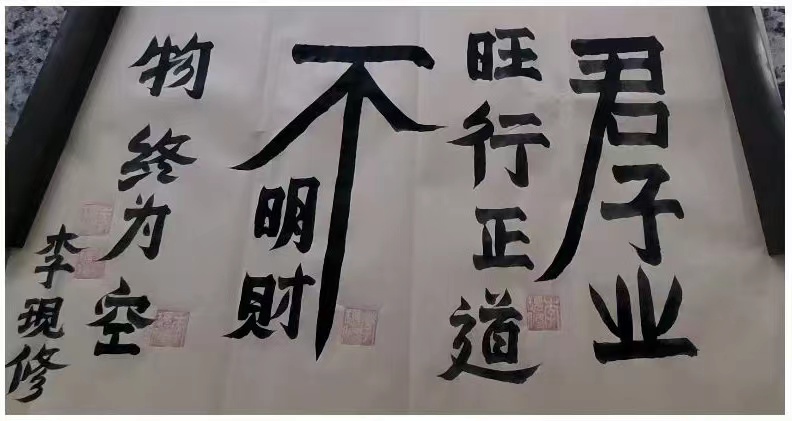 君子业
旺行正道
不明财
物终为空
李現修